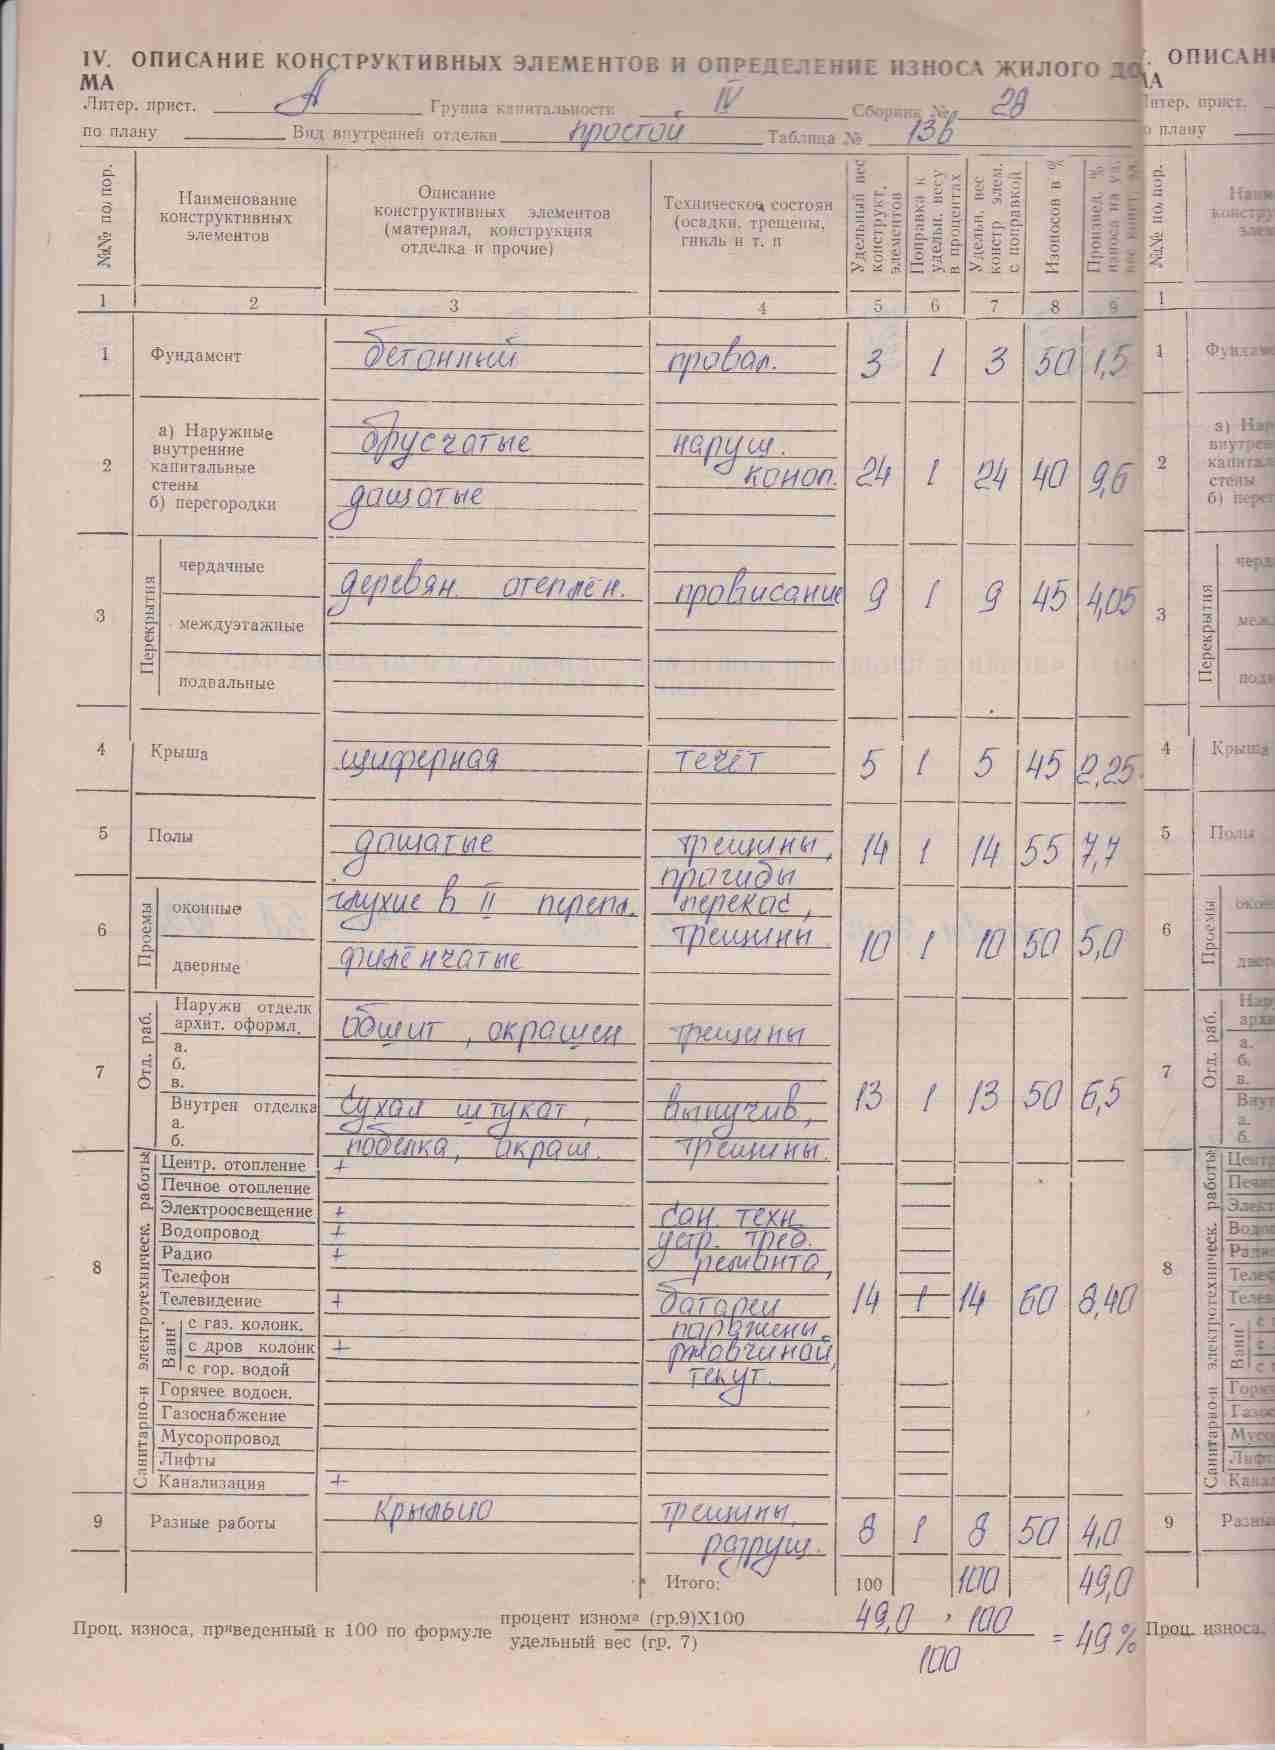 IV. ОПИСАНИЕ КОНСТРУКТИВНЫХ ЭЛЕМЕНТОВ И ОПРЕДЕЛЕНИЕ ИЗНОСА ЖИЛОГО ДО
МА
Литер. прист. А Группа капитальности IV Сборник № 28
по плану Вид внутренней отделки простой Таблица № 13в
№№ по пор. Наименование конструктивных элементов Описание конструктивных элементов (материал, конструкция отделка и прочие) Техническое состоян (осадки, трещены, гниль и т. п Удельный вес конструкт. элементов Поправка к удельн. весу в процентах Удельн. вес констр элем. с поправкой Изоносов в % Произвед. % износа на уд.
1 2 3 4 5 6 7 8 9
1 Фундамент бетонный провал. 3 1 3 50 1,5
2 а) Наружные внутренние капитальные стены брусчатые наруш. коноп. 24 1 24 40 9,6
б) перегородки дащатые
3 Перекрытия чердачные деревян. отеплён. провисание 9 1 9 45 4,05
междуэтажные
подвальные
4 Крыша шиферная течёт 5 1 5 45 2,25
5 Полы дащатые трещины, прогибы 14 1 14 55 7,7
6 Проемы оконные глухие в II перепл. перекос, трещины 10 1 10 50 5,0
дверные филёнчатые
7 Отд. раб. Наружн отделк архит. оформл. обшит, окрашен трещины
а.
б.
в.
Внутрен отделка сухая штукат, выпучив, 13 1 13 50 6,5
а.
б. побелка, окраш. трещины.
8 Санитарно-и электротехническ. работы Центр. отопление +
Печное отопление
Электроосвещение + сан. техн.
Водопровод + устр. треб.
Радио + ремонта,
Телефон
Телевидение + батареи 14 1 14 60 8,40
Ванн' с газ. колонк. поражены
с дров колонк + ржавчиной,
с гор. водой текут.
Горячее водосн.
Газоснабжение
Мусоропровод
Лифты
Канализация +
9 Разные работы крыльцо трещины, разруш. 8 1 8 50 4,0
Итого: 100 100 49,0
Проц. износа, приведенный к 100 по формуле процент износа (гр.9)X100 49,0 · 100
удельный вес (гр. 7) 100 = 49%
. ОПИСАН
МА
Литер. прист.
о плану
№№ по пор.
1
1 Фундам
2 а) Нар
внутрен
капитал
стены
б) перег
3 Перекрытия черд
меж
подв
4 Крыша
5 Полы
6 Проемы окон
двер
7 Отд. раб. Нар
архи
а.
б.
в.
Внут
а.
б.
8 Санитарно-и электротехническ. работы Центр
Печно
Элект
Водо
Радио
Телеф
Телев
Ванн' с г
с
с г
Горя
Газос
Мусо
Лифт
Кана
9 Разны
Проц. износа,